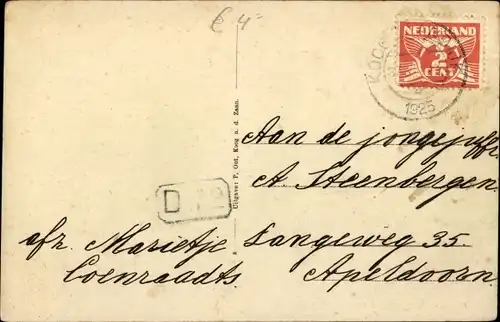 € 4-
NEDERLAND
2
CENT
KOOG
1925
Uitgave: P. Out, Koog a. d. Zaan.
Aan de jongejuffr.
A. Steenbergen
Langeweg 35.
Apeldoorn
D
afz. Marietje
Coenraadts